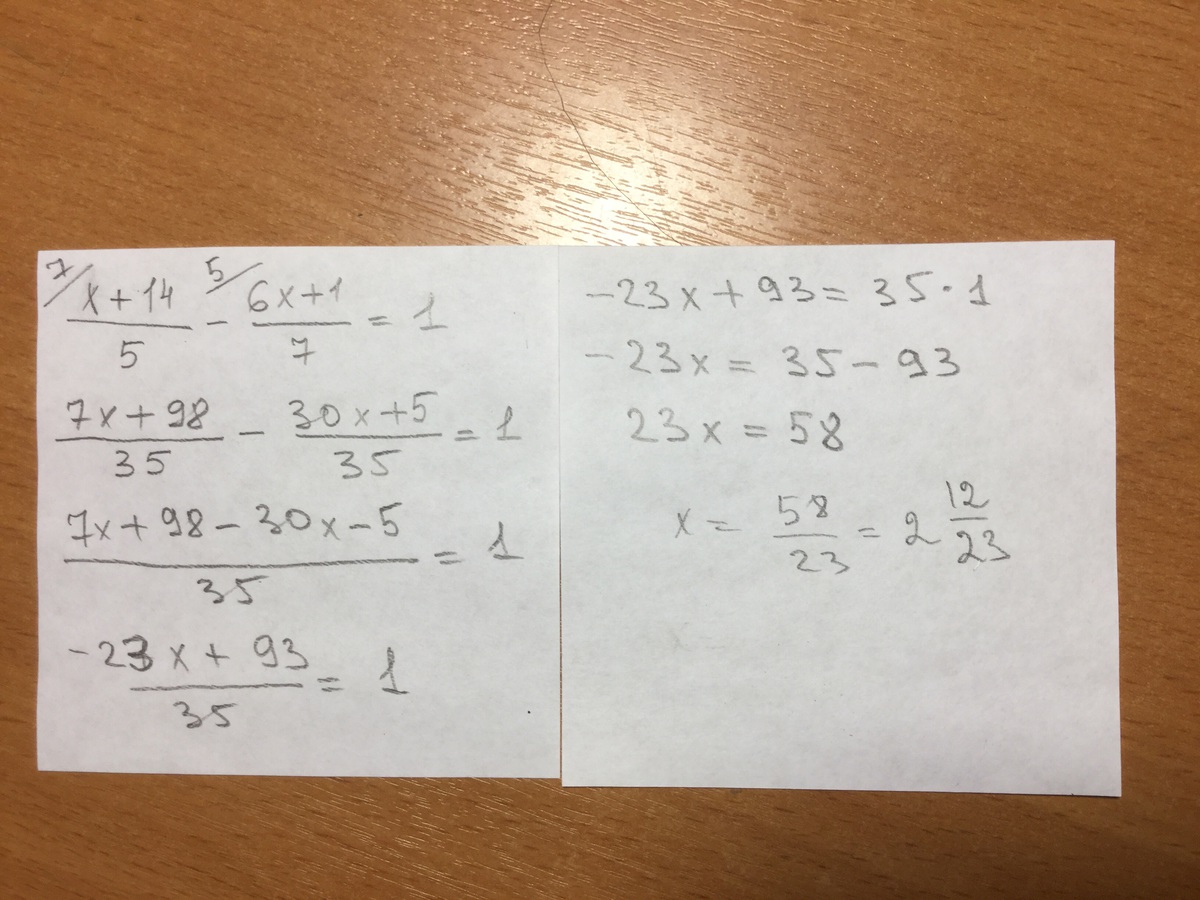 7/ (x+14)/5 - 5/ (6x+1)/7 = 1
(7x+98)/35 - (30x+5)/35 = 1
(7x+98-30x-5)/35 = 1
(-23x+93)/35 = 1
-23x+93=35·1
-23x=35-93
23x=58
x=58/23=2 12/23